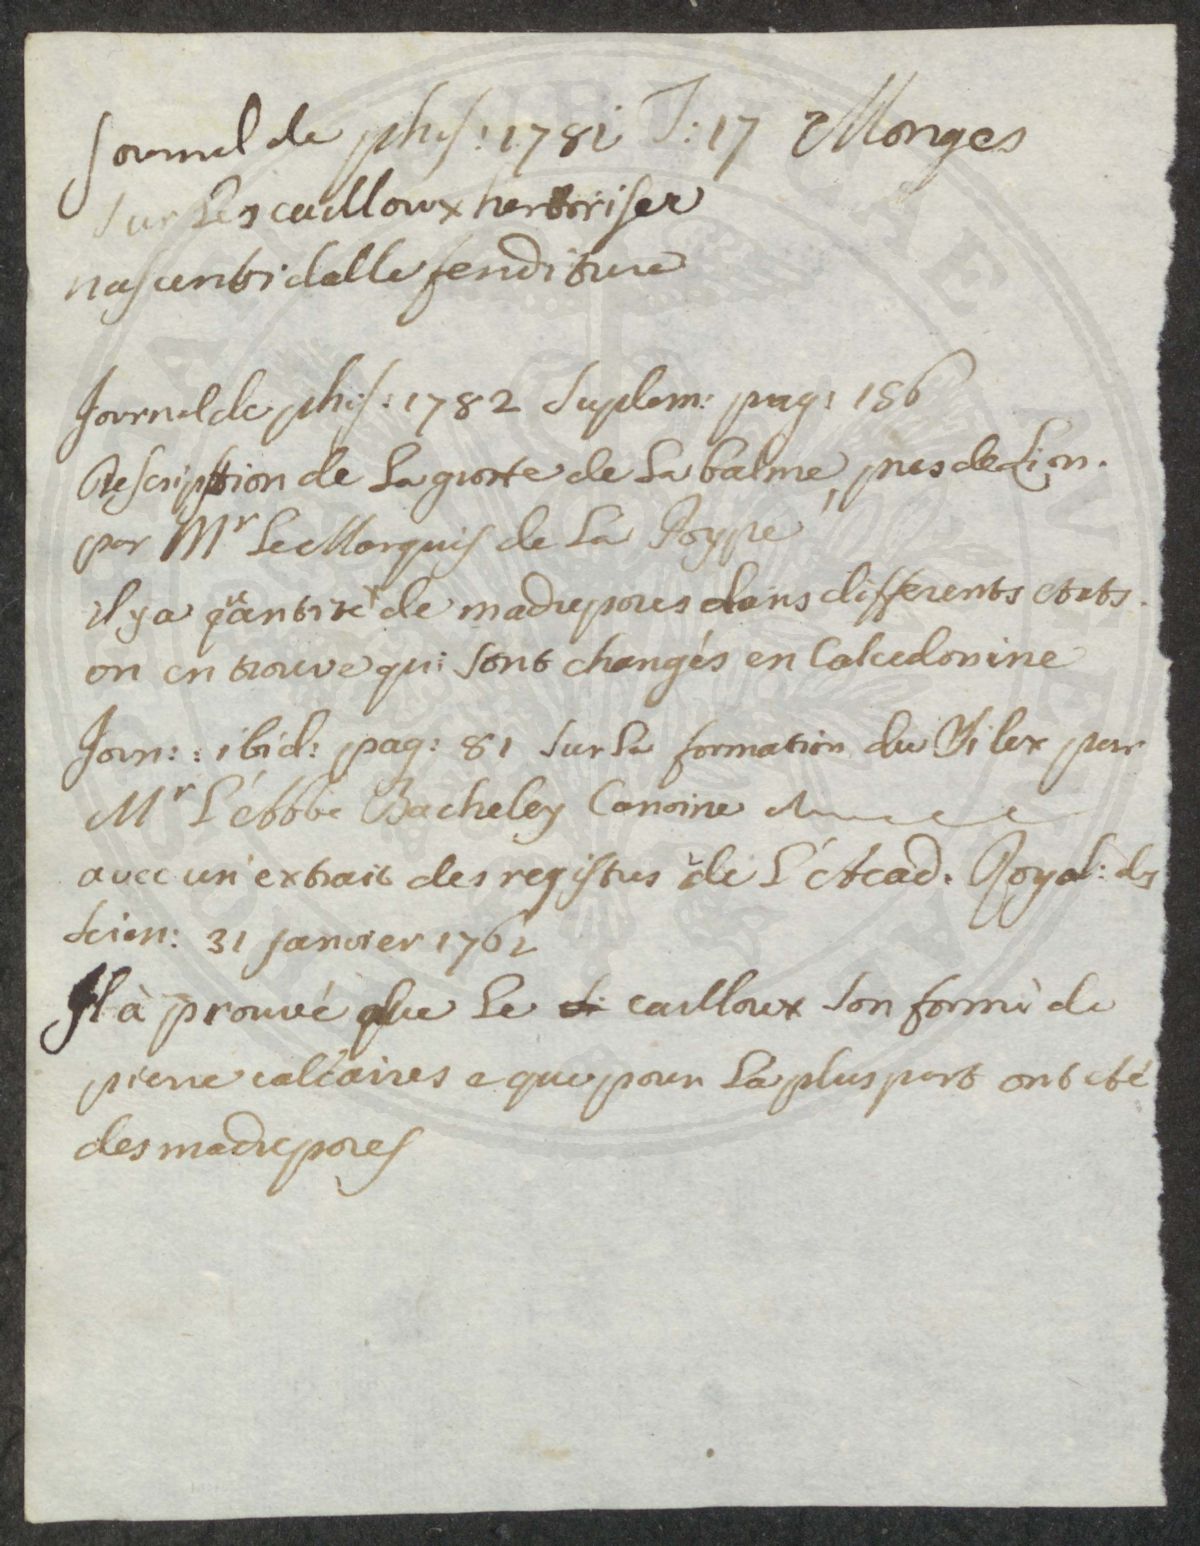 Journal de phis: 1781 T: 17 Monges
sur Les cailloux herboriser
nascenti dalle fenditure
Journal de phis: 1782 Suplem: pag: 186
Description de La grotte de La balme, pres de Lion.
par Mr Le Marquis de La Poype
il y a quantité de madrepores dans differents etats.
on en trouve qui sont changés en Calcedonine
Jorn: : ibid: pag: 81 sur La formation du Silex par
Mr L'ébbbe Bacheley Canoine
avec un extrait des registres de L'Acad. Royal: des
Scien: 31 janvier 1762
Il à prouvé que Le cailloux son formè de
pierre calcaires e que pour La plus part ont eté
des madrepores